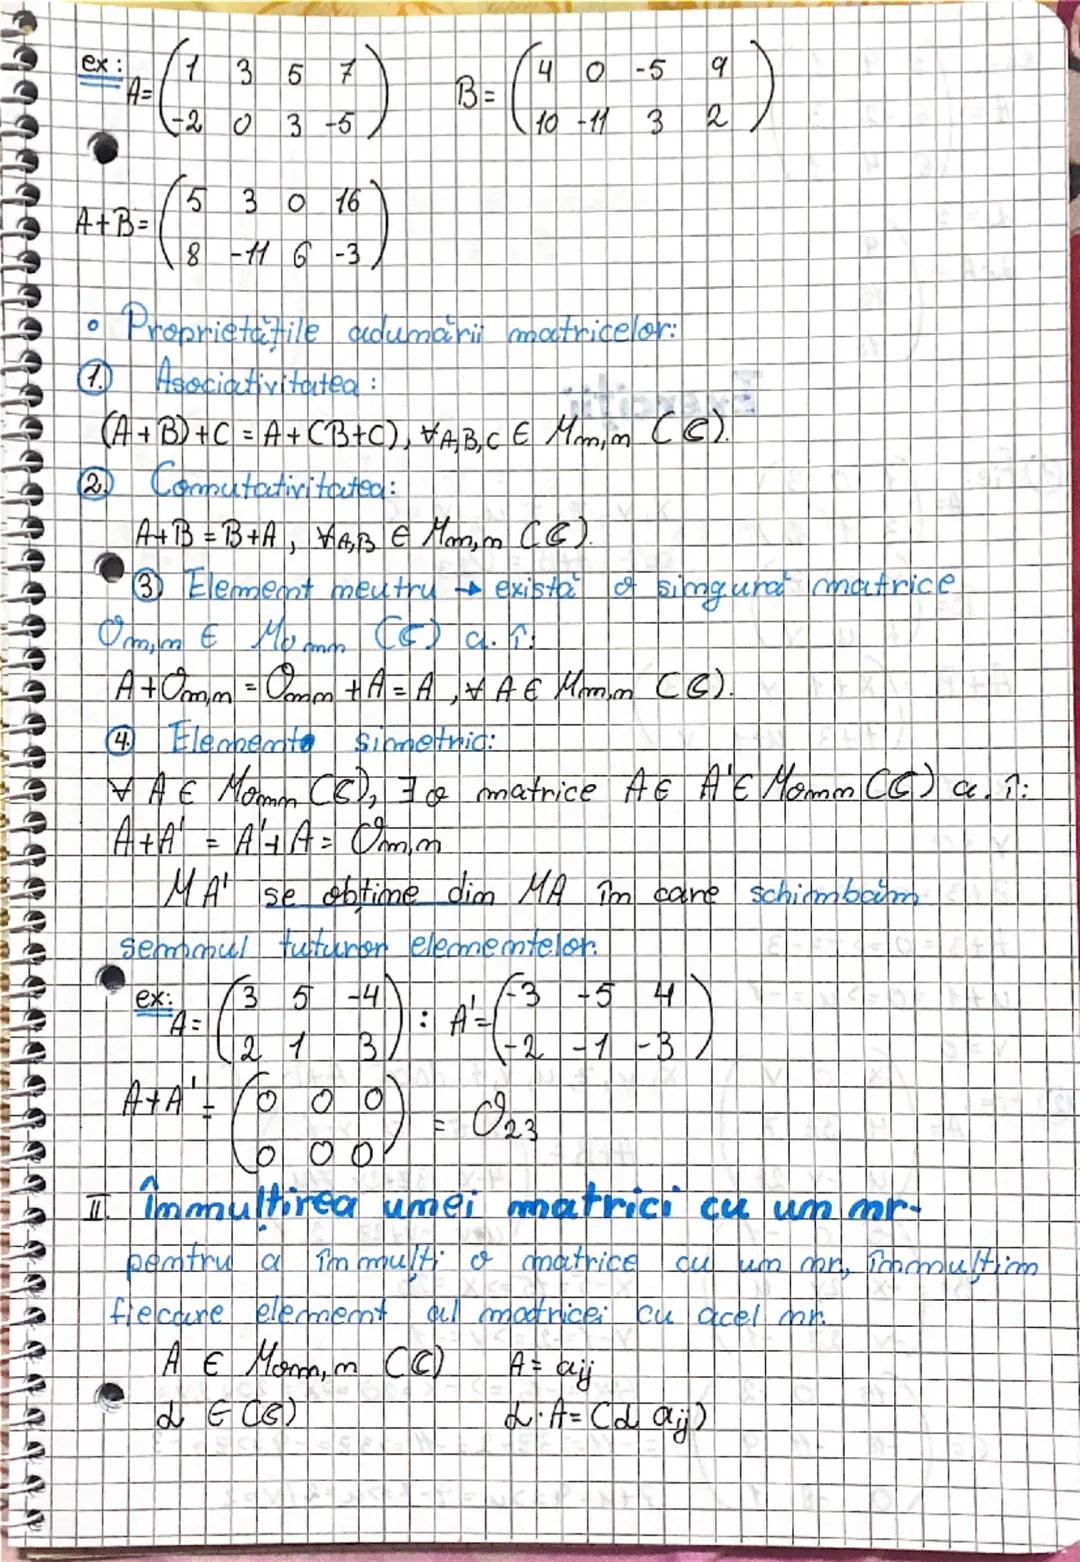 ex: A = (1 3 5 7 B = (4 0 -5 9
-2 0 3 -5) 10 -11 3 2)
A+B = (5 3 0 16
8 -11 6 -3)
• Proprietățile adumării matricelor:
1. Asociativitatea:
(A+B)+C = A+(B+C), ∀A,B,C ∈ Mm,n (C).
2. Comutativitatea:
A+B = B+A, ∀A,B ∈ Mm,n (C).
3 Element neutru → există o singură matrice
Om,n ∈ Mm,n (C) a. î:
A+Om,n = Om,n +A = A, ∀ A ∈ Mm,n (C).
4. Elemente simetric:
∀ A ∈ Mm,n (C), ∃ o matrice A∈ A'∈ Mm,n (C) a. î:
A+A' = A'+A = Om,n
MA' se obține din MA în care schimbăm
semnul tuturor elementelor.
ex: A = (3 5 -4 : A' = (-3 -5 4
2 1 3) -2 -1 -3)
A+A' = (0 0 0 = O23
0 0 0)
II. Înmulțirea unei matrici cu un nr.
pentru a înmulți o matrice cu un nr, înmulțim
fiecare element al matricei cu acel nr.
A ∈ Mm,n (C) A = aij
α ∈ (C) α·A = (α aij)